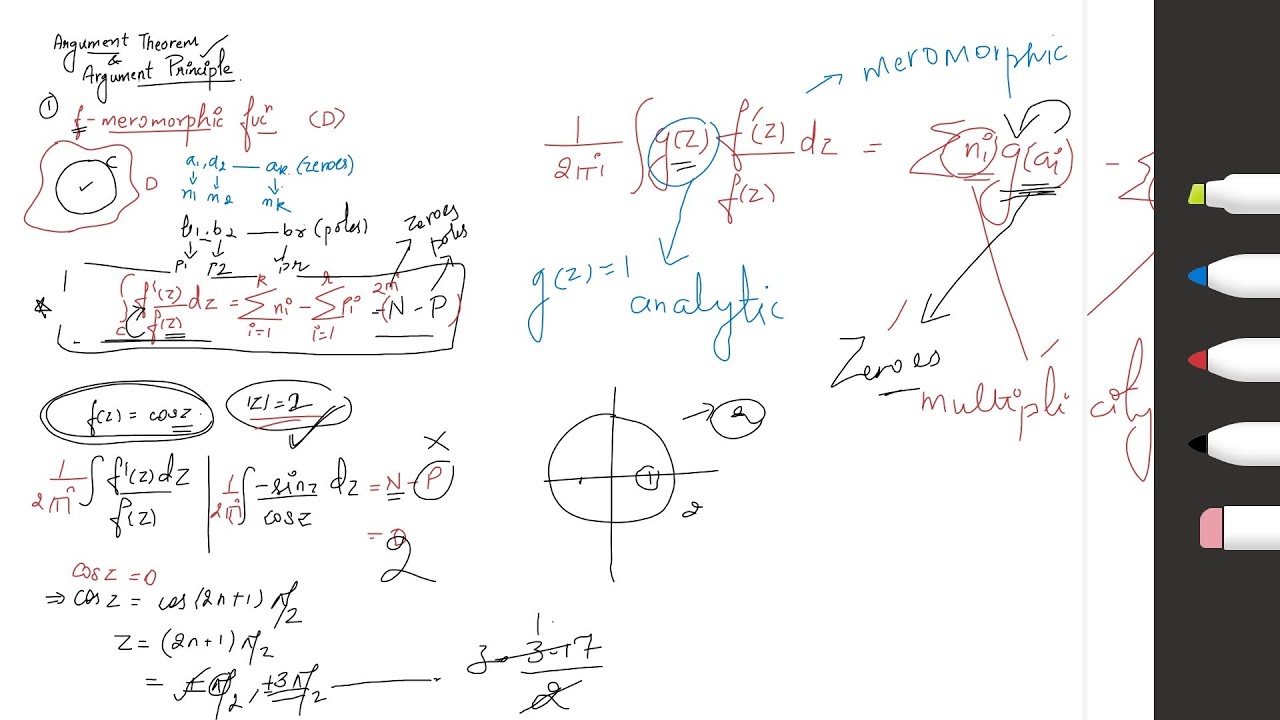 Argument Theorem
&
Argument Principle.
① f - meromorphic fucⁿ (D)
C
D
a₁, a₂ — aₖ (zeroes)
n₁ n₂ nₖ
b₁, b₂ — br (poles)
p₁ p₂ pr
zeroes
poles
* ∫c f'(z)/f(z) dz = Σᵢ₌₁ᵏ nᵢ − Σᵢ₌₁ʳ pᵢ = 2πi (N − P)
f(z) = cosz. |z| = 2
1/2πi ∫ f'(z)dz/f(z) | 1/2πi ∫ −sinz/cosz dz = N − P
X
= 2
cosz = 0
⇒ cosz = cos(2n+1)π/2
z = (2n+1)π/2
= ±π/2, ±3π/2 —
1/2πi ∫ g(z) f'(z)/f(z) dz = Σ nᵢ g(aᵢ) − Σ
→ meromorphic
g(z) = 1
analytic
Zeroes
multiplicity
2
1
2